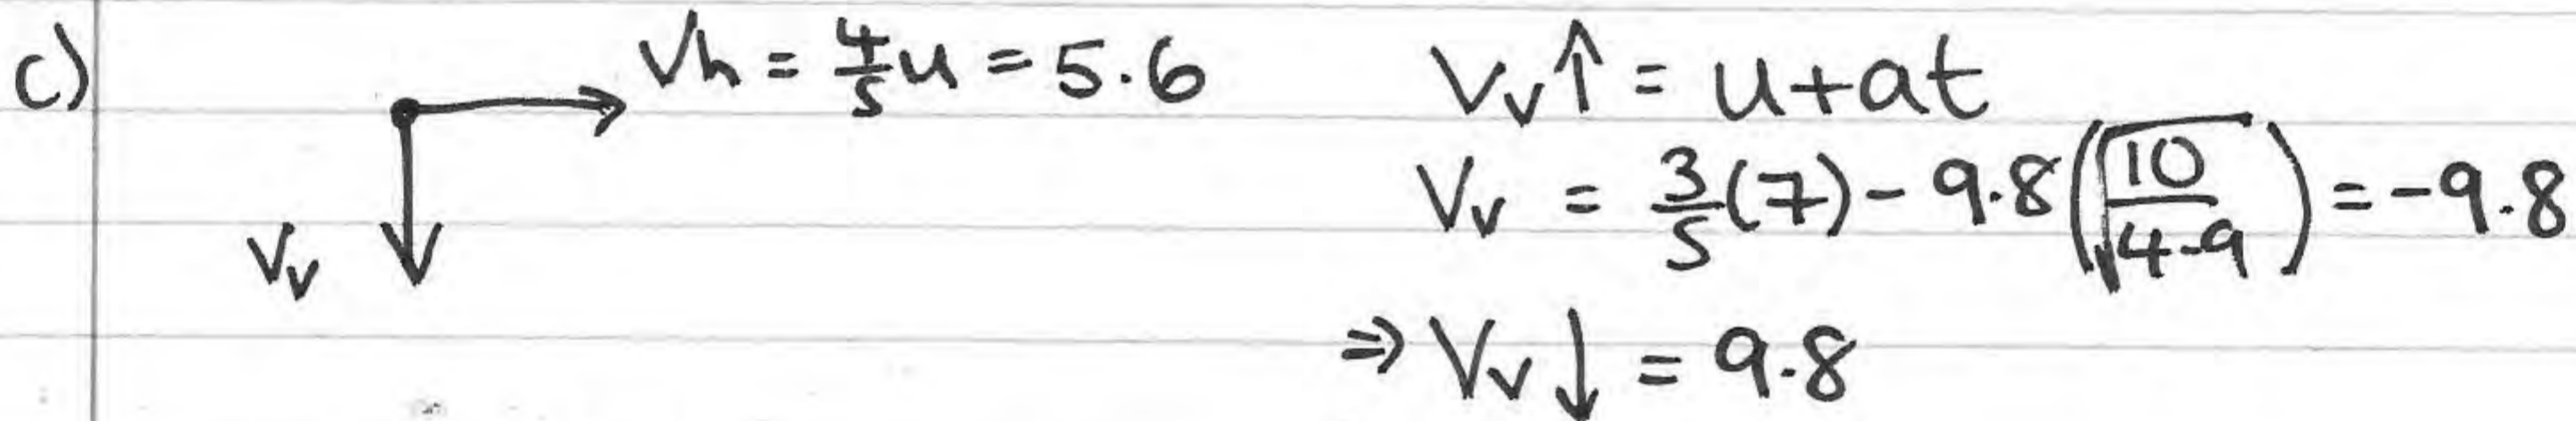 c) Vh = 4/5 u = 5.6
Vv↑ = u+at
Vv = 3/5(7) - 9.8(√(10/4.9)) = -9.8
Vv
⇒ Vv↓ = 9.8